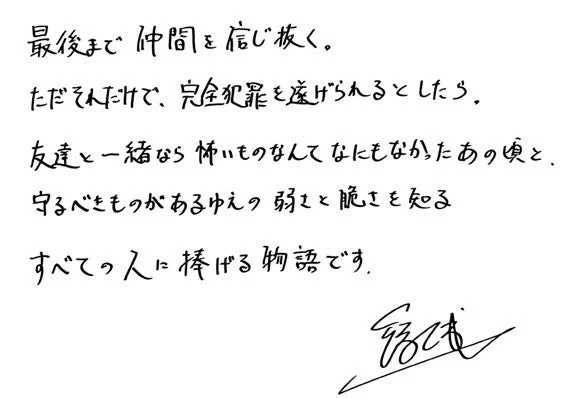 最後まで仲間を信じ抜く。
ただそれだけで、完全犯罪を遂げられるとしたら。
友達と一緒なら怖いものなんてなにもなかったあの頃と、
守るべきものがあるゆえの弱さと脆さを知る
すべての人に捧げる物語です。